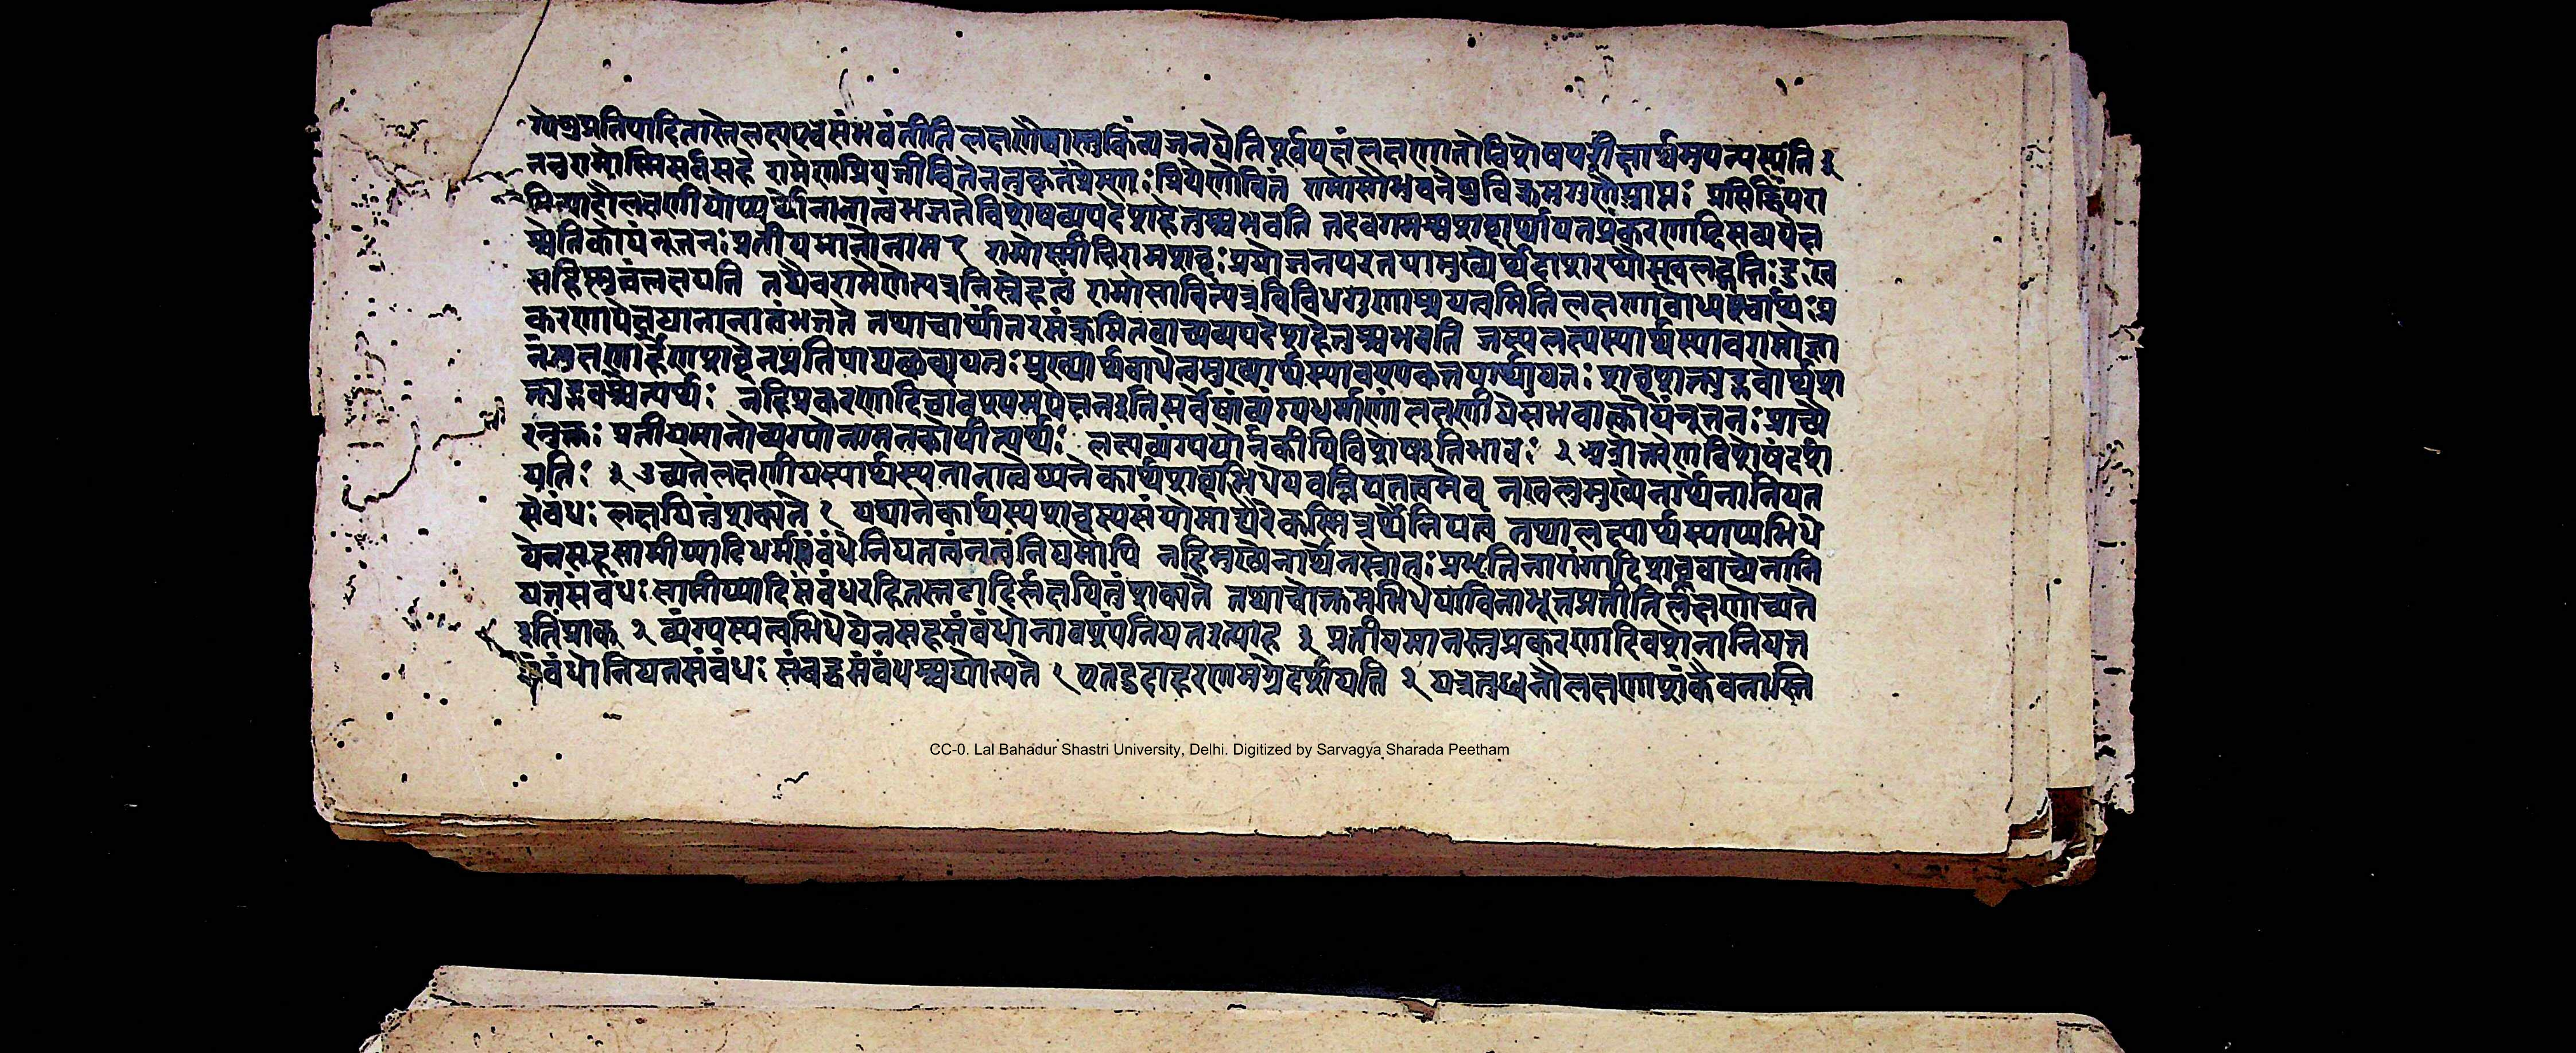 ग्येषु प्रतिपादितास्ते लक्ष्येष्वेव संभवंतीति लक्षणैवास्तु किं व्यंजनयेति पूर्वपक्षं लक्षणातो विशेषपरीक्षार्थमुपन्यस्यंति ३
ननु रामोस्मि सर्वं सहे रामेण प्रियजीवितेन तु कृतं प्रेम्णः प्रिये नोचितं रामोसौ भुवनेषु विक्रमगुणैः प्राप्तः प्रसिद्धिं परा
मित्यादौ लक्षणीयोप्यर्थो नानात्वं भजते विशेषव्यपदेशहेतुश्च भवति तदवगमश्च शब्दार्थायत्तः प्रकरणादिसव्यपेक्ष
श्चेति कोयं नूतनः प्रतीयमानो नाम १ रामोस्मीति रामशब्दः प्रयोजनपरतया मुख्येर्थे दाशरथौ स्खलद्गतिः दुःख
सहिष्णुत्वं लक्षयति तथैव रामेणेत्यत्र निस्नेहत्वं रामोसावित्यत्र विविधगुणाश्रयत्वमिति लक्षणाबाध्यश्चार्थः प्र
करणापेक्षया नानात्वं भजते तथा चार्थांतरसंक्रमितवाच्यव्यपदेशहेतुश्च भवति लक्ष्यस्यार्थस्यावगमो ज्ञा
नं लक्षणार्हेण शब्देन प्रतिपाद्यत्वाच्छब्दायत्तः मुख्यार्थबाधेन मुख्यार्थस्यावश्यकत्वादर्थायत्तः शब्दशक्त्युद्भवार्थश
क्त्युद्भवश्चेत्यर्थः नहि प्रकरणादि चावश्यमपेक्षत इति सर्वेषां व्यंग्यधर्माणां लक्षणीये संभवात्कोयं नूतनः प्राच्यै
रनुक्तः प्रतीयमानो व्यंग्यो नाम न कोपीत्यर्थः लक्ष्यव्यंग्ययोर्न कोपि विशेष इति भावः २ अत्रोत्तरेण विशेषं दर्श
यति ३ उच्यते लक्षणीयस्यार्थस्य नानात्वेप्यनेकार्थशब्दाभिधेयवन्नियतत्वमेव न खलु मुख्येनार्थेनानियत
संबंधः लक्षयितुं शक्यते १ यथानेकार्थस्य शब्दस्य संयोगाद्यैरेकस्मिन्नर्थे नियतत्वं तथा लक्ष्यार्थस्याप्यभिधे
येन सह सामीप्यादिधर्मसंबंधे नियतत्वं न त्वनियमोपि नहि मुख्येनार्थेन स्रोतःप्रभृतिना गंगादिशब्दवाच्येनानि
यतसंबंधः सामीप्यादिसंबंधरहितस्तटादिर्लक्षयितुं शक्यते तथा चोक्तमभिधेयाविनाभूतप्रतीतिर्लक्षणोच्यते
इति प्राक् २ व्यंग्यस्य त्वभिधेयेन सह संबंधो नावश्यं नियत इत्याह ३ प्रतीयमानस्तु प्रकरणादिवशेनानियत
संबंधो नियतसंबंधः संबद्धसंबंधश्च द्योत्यते १ एतदुदाहरणमग्रे दर्शयति २ यत्र तु ध्वनौ लक्षणाशंकैव नास्ति
CC-0. Lal Bahadur Shastri University, Delhi. Digitized by Sarvagya Sharada Peetham